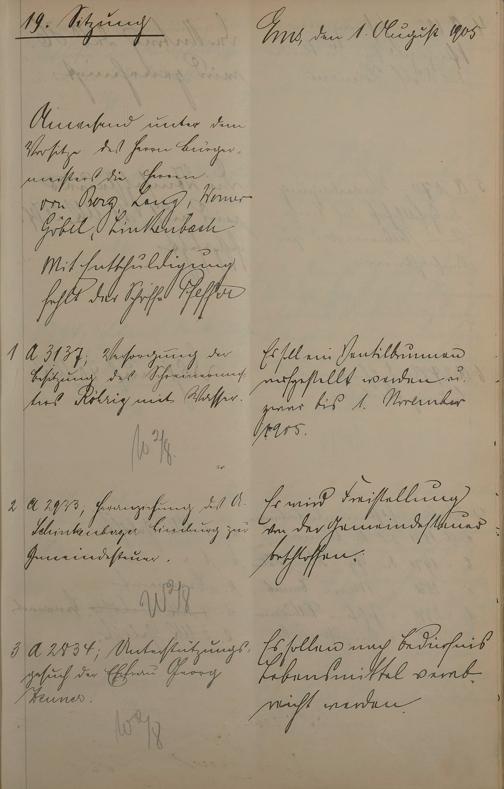 19. Sitzung
Ems, den 1. August 1905
Anwesend unter dem
Vorsitze des Herrn Bürger-
meisters die Herren
von Borg, Lang,
Göbel, Linkenbach
Mit Entschuldigung
fehlt der Schöffe
1 A 3137; Versorgung der
Besitzung des Schreinermeis-
ters Röhrig mit Wasser.
Es soll ein Ventilbrunnen
aufgestellt werden u.
zwar bis 1. November
1905.
W 2/8.
2 A 2933; Heranziehung des A.
Limburg zur
Gemeindesteuer.
Es wird Freistellung
von der Gemeindesteuer
beschlossen.
W 2/8
3 A 2834; Unterstützungs-
gesuch der Ehefrau Georg
Es sollen nach Bedürfnis
Lebensmittel verab-
reicht werden.
W 2/8